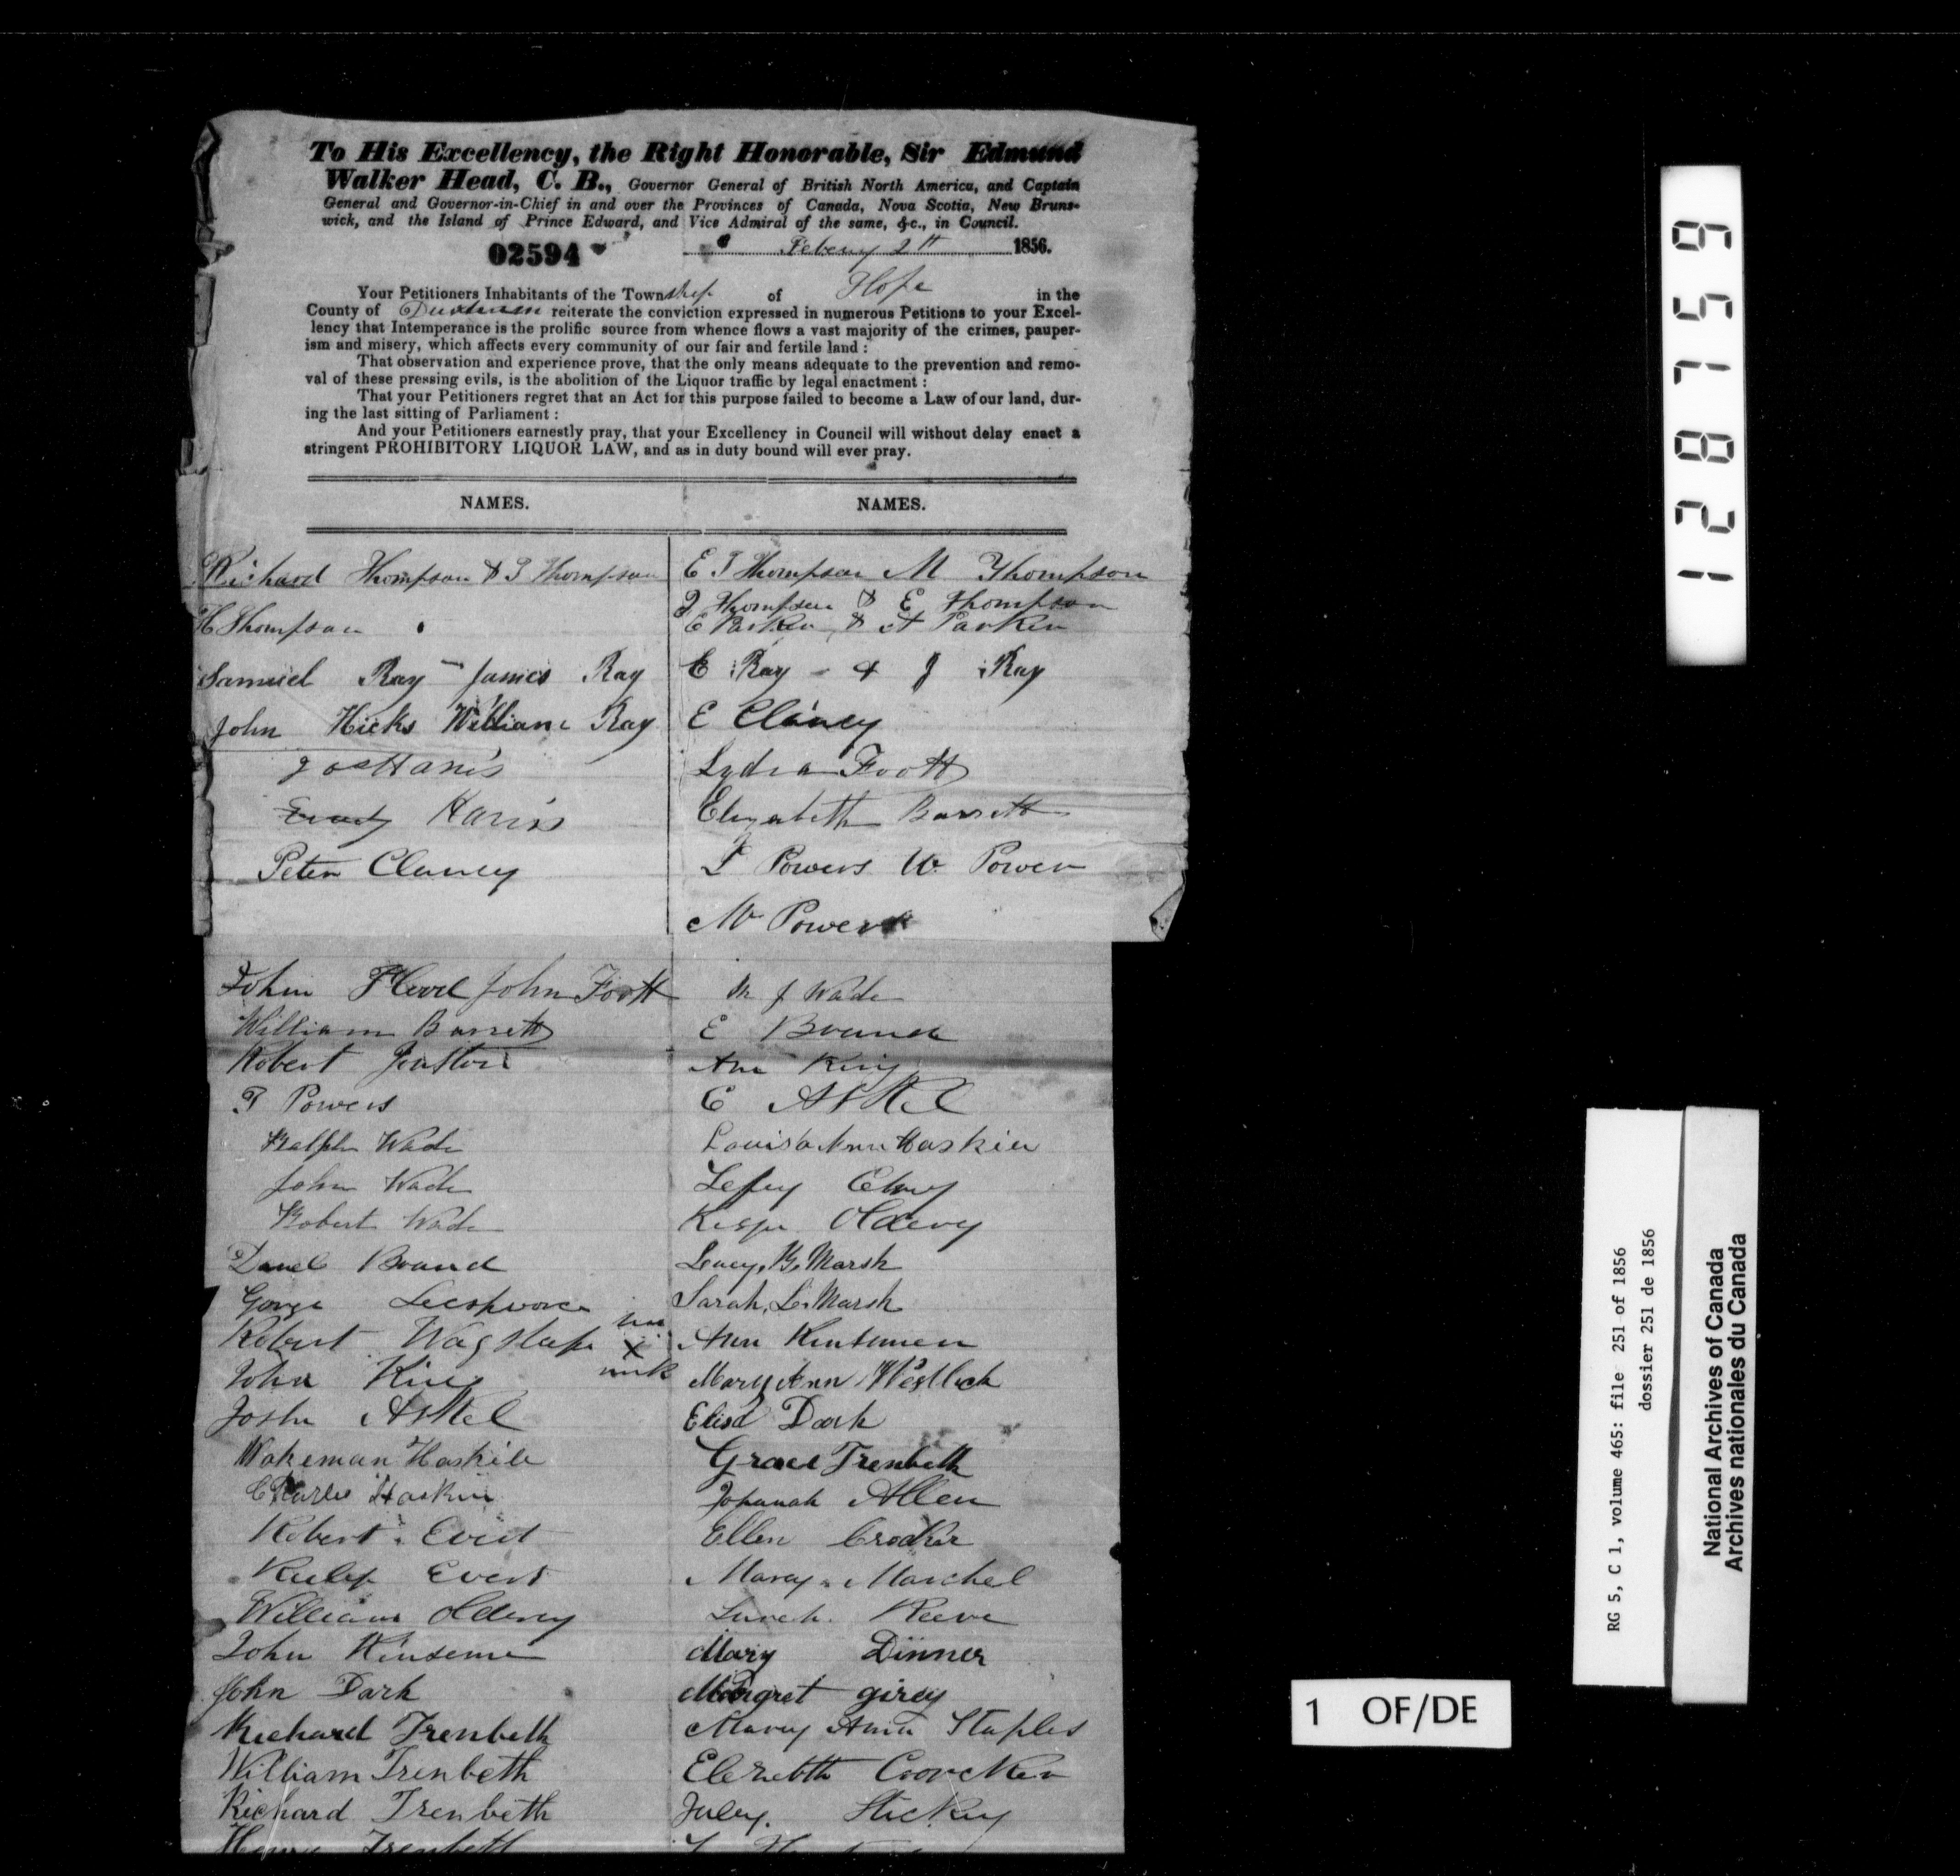 To His Excellency, the Right Honorable, Sir Edmund
Walker Head, C. B., Governor General of British North America, and Captain
General and Governor-in-Chief in and over the Provinces of Canada, Nova Scotia, New Bruns-
wick, and the Island of Prince Edward, and Vice Admiral of the same, &c., in Council.
02594
Febery 2th 1856.
Your Petitioners Inhabitants of the Township of Hope in the
County of Durham reiterate the conviction expressed in numerous Petitions to your Excel-
lency that Intemperance is the prolific source from whence flows a vast majority of the crimes, pauper-
ism and misery, which affects every community of our fair and fertile land :
That observation and experience prove, that the only means adequate to the prevention and remo-
val of these pressing evils, is the abolition of the Liquor traffic by legal enactment :
That your Petitioners regret that an Act for this purpose failed to become a Law of our land, dur-
ing the last sitting of Parliament :
And your Petitioners earnestly pray, that your Excellency in Council will without delay enact a
stringent PROHIBITORY LIQUOR LAW, and as in duty bound will ever pray.
NAMES.
Richard Thompson & T Thompson
H Thompson
Samuel Ray James Ray
John Hicks William Ray
Harris
Peter Clancy
John John Foott
William Barrett
Robert
T Powers
Ralph Wade
John Wade
Robert Wade
Brand
Robert Wagstafe
x
John King
Askel
Wakeman Haskill
Charles Haskin
Robert Evert
Evert
William Oldery
John
John Dark
Richard Trenbeth
William Trenbeth
Richard Trenbeth
Trenbeth
NAMES.
E T Thompson M Thompson
J Thompson & E Thompson
E Parker & A Parker
E Ray & J Ray
E Clancy
Lydia Foott
Elizabeth Barrett
Powers W Power
M Power
M J Wade
E Brand
Ann King
E Askel
Louisa Ann Haskin
Oldery
Lucy, B. Marsh
Sarah, L. Marsh
Ann
Mary Ann Westlick
Elisa Dark
Grace Trenbeth
Johanah Allen
Ellen Crocker
Marey Marchel
Reeve
Mary Dinner
Margret girey
Marey Ann Staples
Juley.
128159
RG 5, C 1, volume 465: file 251 of 1856
dossier 251 de 1856
National Archives of Canada
Archives nationales du Canada
1 OF/DE